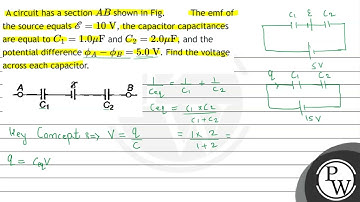 A circuit has a section AB shown in Fig. The emf of
the source equals ℰ = 10 V, the capacitor capacitances
are equal to C₁ = 1.0μF and C₂ = 2.0μF, and the
potential difference φ_A − φ_B = 5.0 V. Find the voltage
across each capacitor.
A ℰ B
C₁ C₂
Key Concept ⇒ V = q/C
q = CeqV
1/Ceq = 1/C₁ + 1/C₂
Ceq = C₁×C₂/C₁+C₂
= 1×2/1+2 =
C₁ ℰ C₂
5V
q C₁ C₂
15V
PW